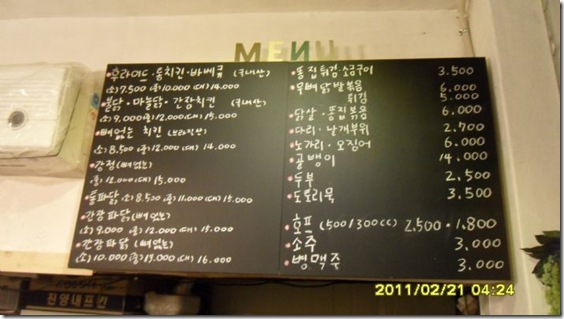 MENU
후라이드·통치킨·바베큐 (국내산)
(소)7.500 (중)10.000 (대)14.000
불닭·마늘닭·간장치킨 (국내산)
(소)9.000 (중)12.000 (대)15.000
뼈없는 치킨 (브라질산)
(소)8.500 (중)12.000 (대)14.000
강정 (뼈없는)
(중)12.000 (대)15,000
파닭 (소)8.500 (중)11.000 (대)15.000
간장파닭 (뼈있는)
(소)9.000 (중)12.000 (대)15.000
간장파닭 (뼈없는)
(소)10.000 (중)19.000 (대)16.000
똥집튀김·소금구이 3.500
무뼈닭발볶음 6.000
튀김 5.000
닭살·똥집볶음 6.000
다리·날개부위 2.700
노가리·오징어 6.000
골뱅이 14.000
두부 2.500
도토리묵 3.500
호프 (500/300cc) 2.500·1.800
소주 3.000
병맥주 3.000
진양내프킨
2011/02/21 04:24